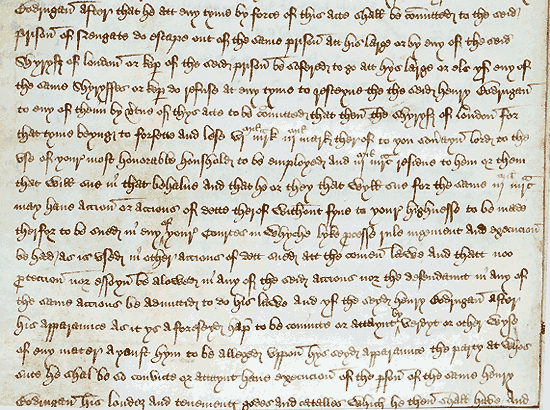 Bodrugan after that he att eny tyme by force of this acte shall be comitted to the seid
prison of Newgate do escape out of the same prison att his large or by eny of the seid
Shyryfs of london or kep of the seid prison be sufered to go att hys large or els yf eny of
the same Shyryffes or kep do refuse at eny tyme to resceyve the the seid henry Bodrugan
to eny of theim by vertue of thys acte to be comitted that then the Shyryfs of london for
that tyme beyng to forfette and lese mk mark therof to you soverayn lord to the
use of your most honorable houshold to be employed and mrc residue to hem or them
that will sue in that behalve and that he or they that wyll sue for the same mrc
may have accion or accions of dette therof without fyne to your highnesse to be made
therfor to be sued in eny of your Courtes in whyche lyke processe jugement and execucion
be had as is used in other accions of dett sued att the comen lawe and that noo
proteccion nor essoyn be alowed in any of the seid accions nor the defendaunt in any of
the same accions be admitted to do his lawe and yf the seyd henry Bodrugan after
his apparaunce as it ys aforeseyd hap to be convicte or attaynt by verdyt or other wyse
of eny mater ayenst hym to be alleged uppon hys seyd apparaunce the party at whos
sute he shal be so convicte or attaynt have execucion of the pson of the same henry
Bodrugan his londes and tenementes godes and catalles which he then shall have and